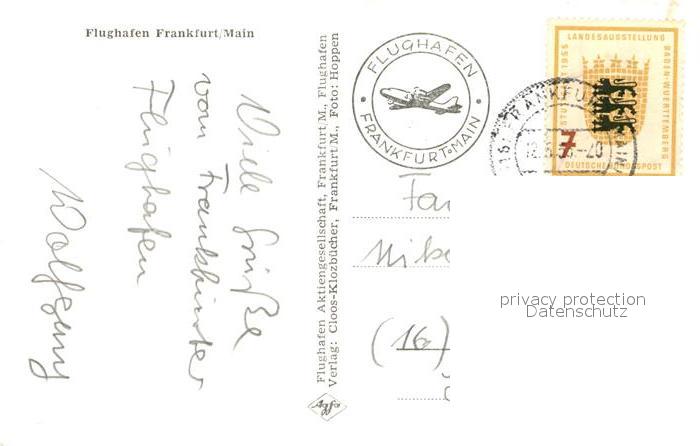 Flughafen Frankfurt/Main
Viele Grüße
vom Frankfurter
Flughafen
Wolfgang
Flughafen Aktiengesellschaft, Frankfurt/M., Flughafen
Verlag: Cloos-Klozbücher, Frankfurt/M., Foto: Hoppen
Agfa
FLUGHAFEN
FRANKFURT-MAIN
LANDESAUSSTELLUNG
BADEN-WUERTTEMBERG
1955
7
DEUTSCHE BUNDESPOST
FRANKFU
-20
Mike
(16)
privacy protection
Datenschutz